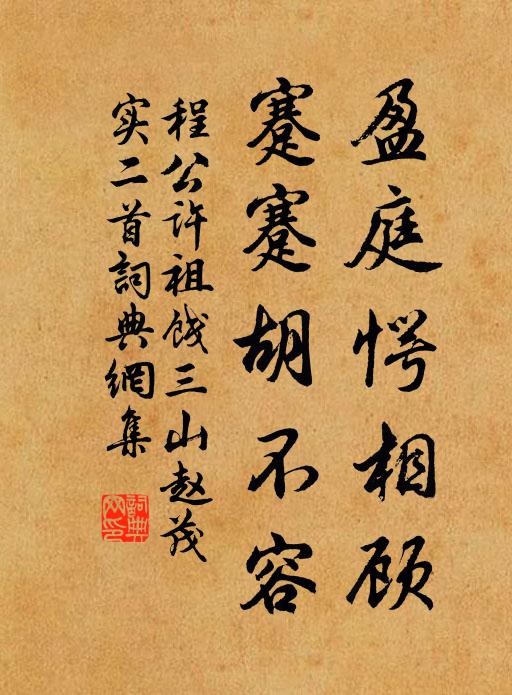 盈庭愕相顾
蹇蹇胡不容
程公许祖饯三山赵茂
实二首詞典網集
詞典
网印